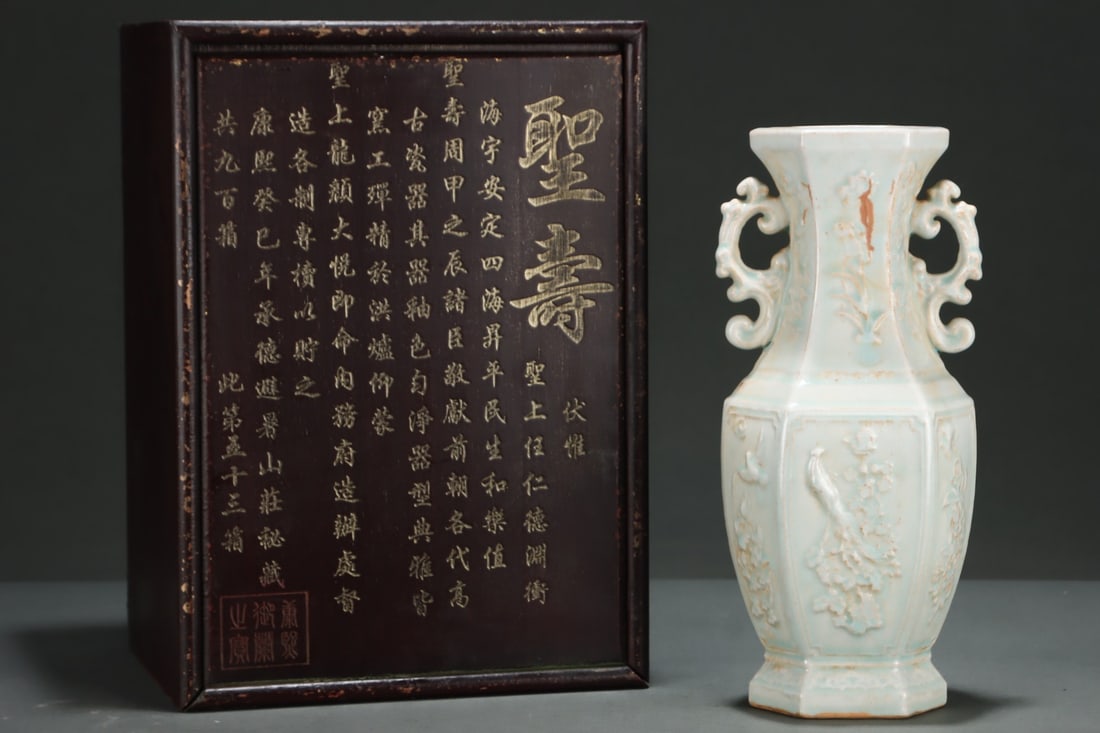 聖壽
伏惟
聖上任仁德淵衝
海宇安定四海昇平民生和樂值
聖壽周甲之辰諸臣敬獻前朝各代高
古瓷器其器釉色勻淨器型典雅皆
窯工殫精於洪爐仰蒙
聖上龍顏大悅即命內務府造辦處督
造各制專櫝以貯之
康熙癸巳年承德避暑山莊祕藏
共九百箱 此第五十三箱
康熙
御蘭
之寶